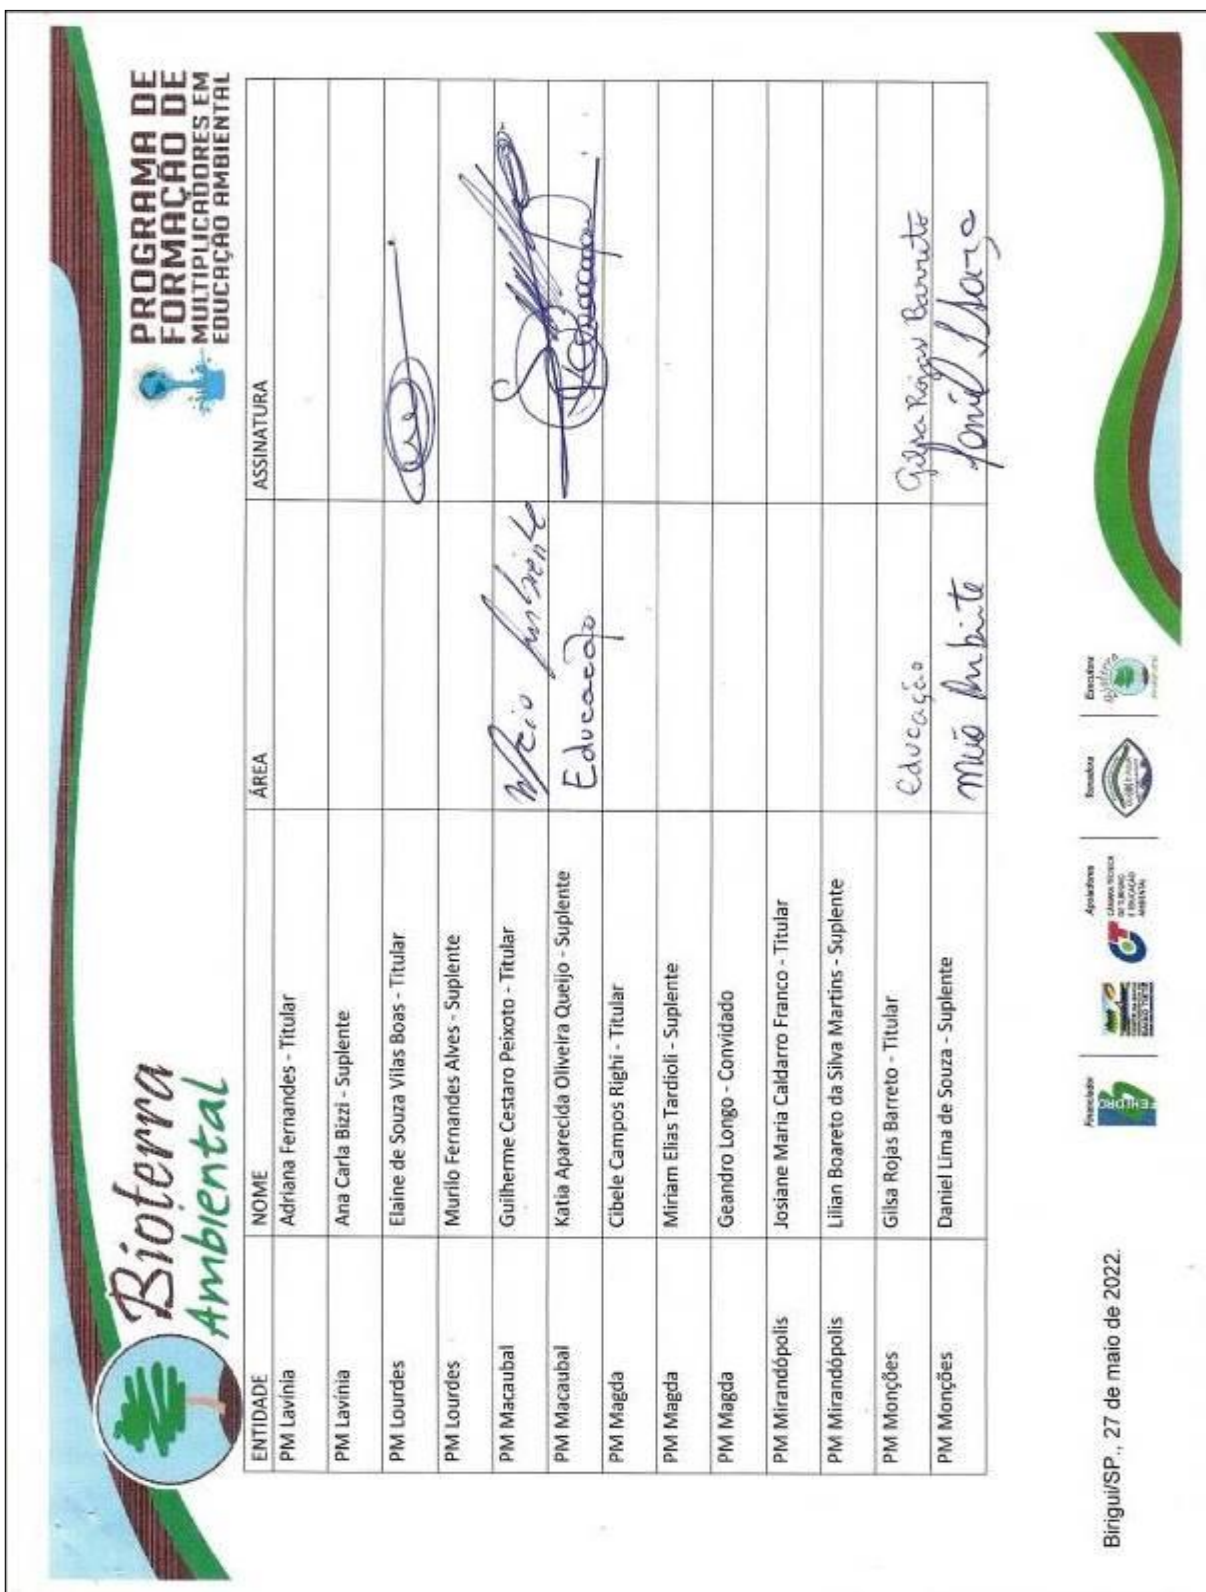 Bioterra
Ambiental
PROGRAMA DE
FORMAÇÃO DE
MULTIPLICADORES EM
EDUCAÇÃO AMBIENTAL
ENTIDADE NOME ÁREA ASSINATURA
PM Lavínia Adriana Fernandes - Titular
PM Lavínia Ana Carla Bizzi - Suplente
PM Lourdes Elaine de Souza Vilas Boas - Titular
PM Lourdes Murilo Fernandes Alves - Suplente
PM Macaubal Guilherme Cestaro Peixoto - Titular Meio Ambiente
PM Macaubal Katia Aparecida Oliveira Queijo - Suplente Educação
PM Magda Cibele Campos Righi - Titular
PM Magda Miriam Elias Tardioli - Suplente
PM Magda Geandro Longo - Convidado
PM Mirandópolis Josiane Maria Caldarro Franco - Titular
PM Mirandópolis Lilian Boareto da Silva Martins - Suplente
PM Monções Gilsa Rojas Barreto - Titular Educação Gilsa Rojas Barreto
PM Monções Daniel Lima de Souza - Suplente Meio Ambiente
Birigui/SP., 27 de maio de 2022.
Financiador
FEHIDRO
Apoiadores
BAIXO TIETÊ
CÂMARA TÉCNICA
DE TURISMO
E EDUCAÇÃO
AMBIENTAL
Tomadora
Executora